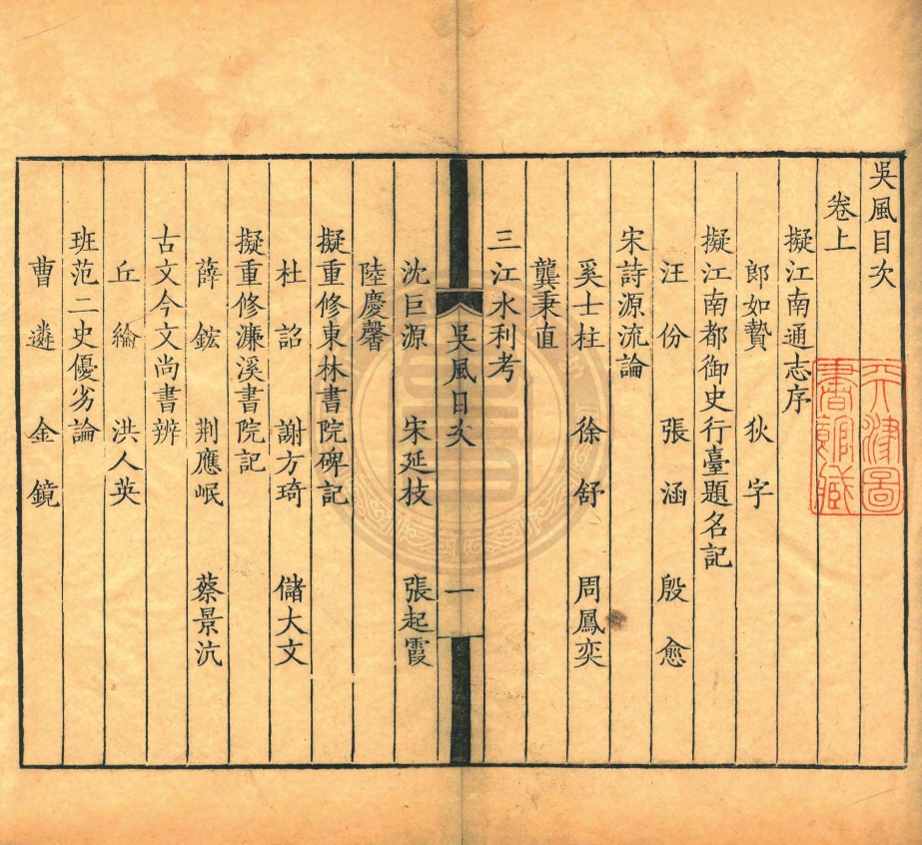 吳風目次
卷上
擬江南通志序
郎如贄　狄字
擬江南都御史行臺題名記
汪份　張涵　殷愈
宋詩源流論
奚士柱　徐舒　周鳳奕
龔秉直
三江水利考
吳風目次　一
沈巨源　宋延枝　張起霞
陸慶馨
擬重修東林書院碑記
杜詔　謝方琦　儲大文
擬重修濂溪書院記
薛鋐　荆應岷　蔡景沆
古文今文尚書辨
丘綸　洪人英
班范二史優劣論
曹遴　金鏡
天津圖
書館藏